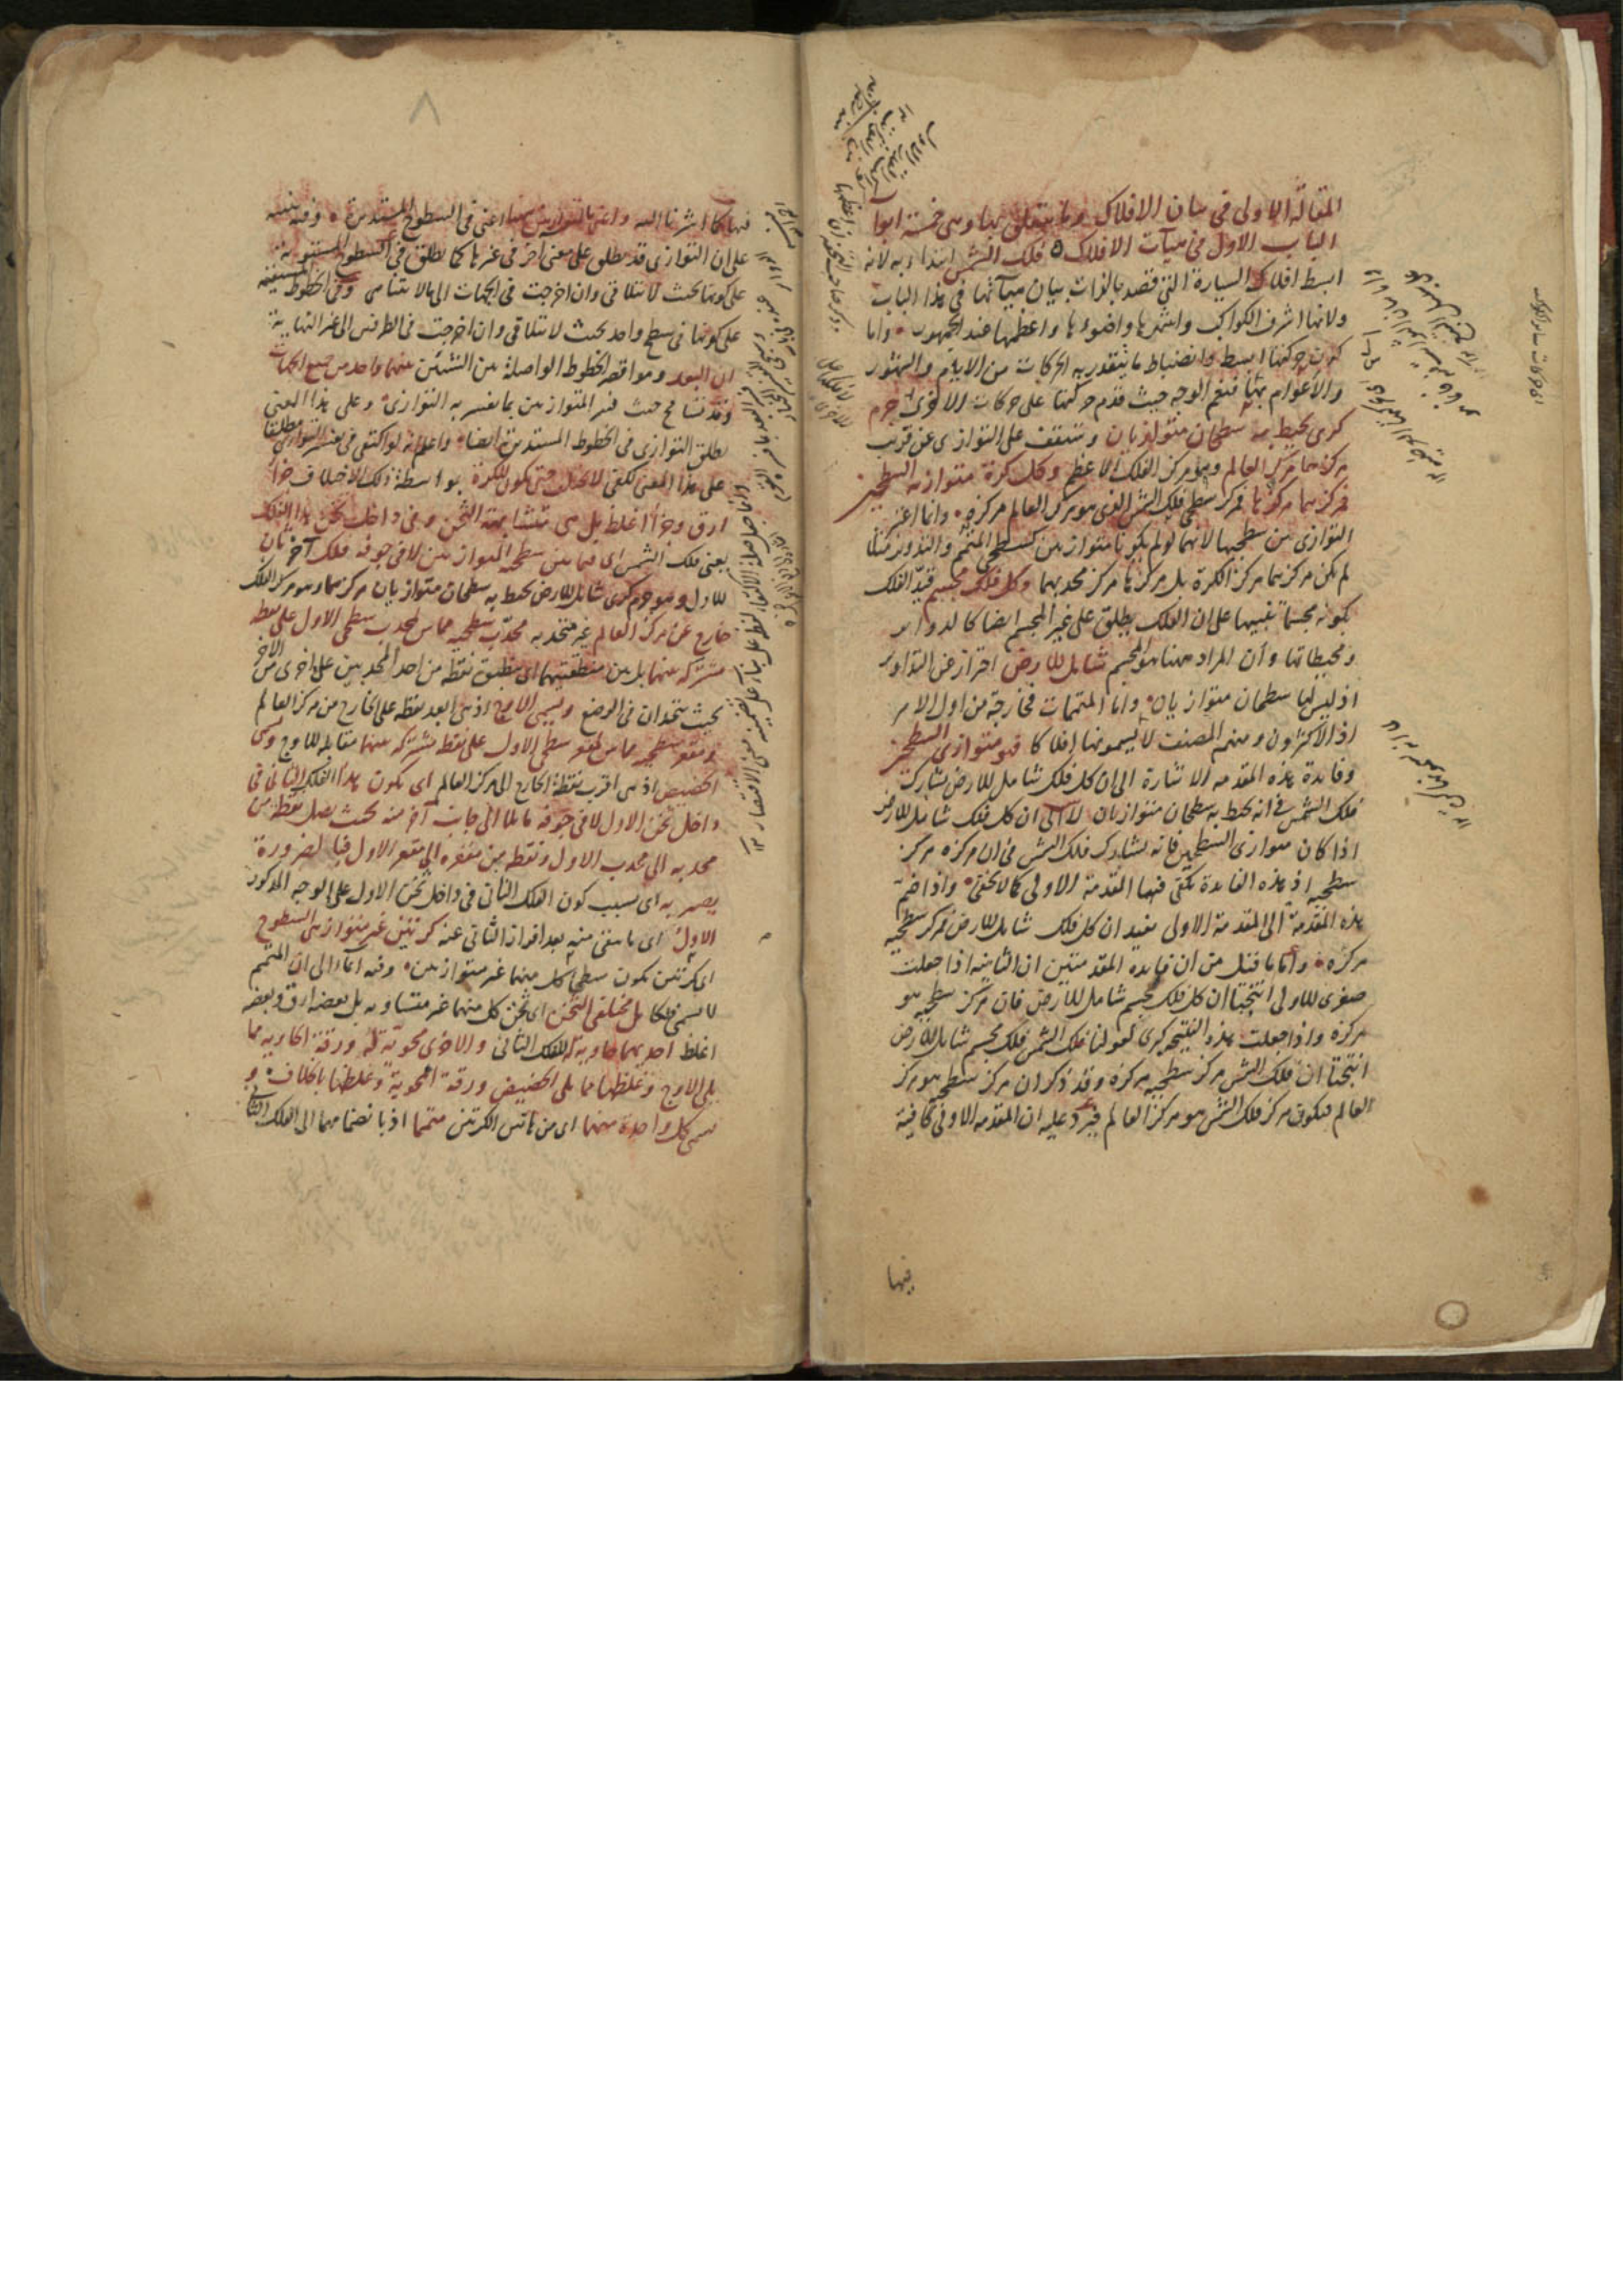 المقالة الاولى فى بيان الافلاك وما يتعلق بها وهى خمسة ابوا
الباب الاول فى هيآت الافلاك فلك الشمس ابتدا به لانه
ابسط افلاك السيارة التى قصد بالذات بيان هيآتها فى هذا الباب
ولانها اشرف الكواكب واشهرها واضوءها واعظمها عند الجمهور واما
كون حركتها ابسط وانضباط ما يتقدر به الحركات من الايام والشهور
والاعوام بها فنعم الوجه حيث قدم حركتها على حركات الاخرى جرم
كرى يحيط به سطحان متوازيان وستقف على التوازى عن قريب
مركزهما مركز العالم وهو مركز الفلك الاعظم وكل كرة متوازية السطحين
فمركزهما مركزها فمركز سطحى فلك الشمس الذى هو مركز العالم مركزه وانما اعتبر
التوازى بين سطحيها لانهما لو لم يكونا متوازيين كسطحى المتمم والتدوير مثلا
لم يكن مركزهما مركز الكرة بل مركزها مركز محدبهما وكل فلك مجسم قيد الفلك
بكونه مجسما تنبيها على ان الفلك يطلق على غير المجسم ايضا كالدواير
ومحيطاتها وان المراد ههنا هو المجسم شامل للارض احتراز عن التداوير
اذ ليس لها سطحان متوازيان واما المتممات فخارجة من اول الامر
اذ الاكثرون ومنهم المصنف لا يسمونها افلاكا فهو متوازى السطحين
وفايدة هذه المقدمه الاشارة الى ان كل فلك شامل للارض يشارك
فلك الشمس فى انه يحيط به سطحان متوازيان لا الى ان كل فلك شامل للارض
اذا كان متوازى السطحين فانه يشارك فلك الشمس فى ان مركزه مركز
سطحيه اذ هذه الفايدة تكفى فيها المقدمة الاولى كما لا يخفى واذا ضم
هذه المقدمة الى المقدمة الاولى يفيد ان كل فلك شامل للارض فمركز سطحيه
مركزه واما ما قيل من ان فايده المقدمتين ان الثانيه اذا جعلت
صغرى للاولى انتجتا ان كل فلك مجسم شامل للارض فان مركز سطحيه هو
مركزه واذا جعلت هذه النتيجه كبرى لقولنا فلك الشمس فلك مجسم شامل للارض
انتجتا ان فلك الشمس مركز سطحيه مركزه وقد ذكر ان مركز سطحيه هو مركز
العالم فيكون مركز فلك الشمس هو مركز العالم فيرد عليه ان المقدمه الاولى كافية
فيها
اى حركات ساير الكواكب
٨
فيها كما اشرنا اليه اعنى فى السطوح المستديرة وفيه تنبيه
على ان التوازى قد يطلق على معنى اخر فى غيرها كما يطلق فى السطوح المستوية
على كونها بحيث لا تتلاقى وان اخرجت فى الجهات الى ما لا يتناهى وفى الخطوط المستقيمه
على كونها فى سطح واحد بحيث لا تتلاقى وان اخرجت فى الطرفين الى غير النهاية
ان البعد وهو اقصر الخطوط الواصلة بين الشيئين عنهما واحد من جميع الجهات
وقد تسامح حيث فسر المتوازيين بما يفسر به التوازى وعلى هذا المعنى
يطلق التوازى فى الخطوط المستديرة ايضا واعلم انه لو اكتفى فى تفسير التوازى مطلقا
على هذا المعنى لكفى لا يختلف حتى يكون للكرة بواسطة ذلك الاختلاف جزأ
ارق وجزأ اغلظ بل هى متشابهة الثخن وفى داخل ثخن هذا الفلك
يعنى فلك الشمس اى فيما بين سطحيه المتوازيين لا فى جوفه فلك آخر ثان
للاول وهو جرم كرى شامل للارض يحيط به سطحان متوازيان مركزهما وهو مركز الفلك
خارج عن مركز العالم غير متحد به محدب سطحيه مماس لمحدب سطحى الاول على نقطة
مشتركه بينهما بل بين منطقتيهما اى ينطبق نقطه من احد المحدبين على اخرى من الآخر
بحيث تتحدان فى الوضع ويسمى الاوج اذ هى ابعد نقطه على الخارج من مركز العالم
ومقعر سطحيه مماس لمقعر سطحى الاول على نقطه مشتركه بينهما مقابله للاوج وتسمى
الحضيض اذ هى اقرب نقطة الخارج الى مركز العالم اى يكون هذا الفلك الثانى فى
داخل ثخن الاول لا فى جوفه مايلا الى جانب آخر منه بحيث يصل نقطة من
محدبه الى محدب الاول ونقطه من مقعره الى مقعر الاول فبالضرورة
يصير به اى بسبب كون الفلك الثانى فى داخل ثخن الاول على الوجه المذكور
الاول اى ما يبقى منه بعد افراز الثانى عنه كرتين غير متوازيتى السطوح
اى كرتين يكون سطحا كل منهما غير متوازيين وفيه ايماء الى ان المتمم
لا يسمى فلكا بل مختلفى الثخن اى ثخن كل منهما غير متساويه بل بعضه ارق وبعضه
اغلظ احديهما حاوية للفلك الثانى والاخرى محوية له ورقة الحاوية مما
يلى الاوج وغلظها مما يلى الحضيض ورقة المحوية وغلظها بالخلاف و
يسمى كل واحدة منهما اى من هاتين الكرتين متمما اذ بانضمامهما الى الفلك الثانى